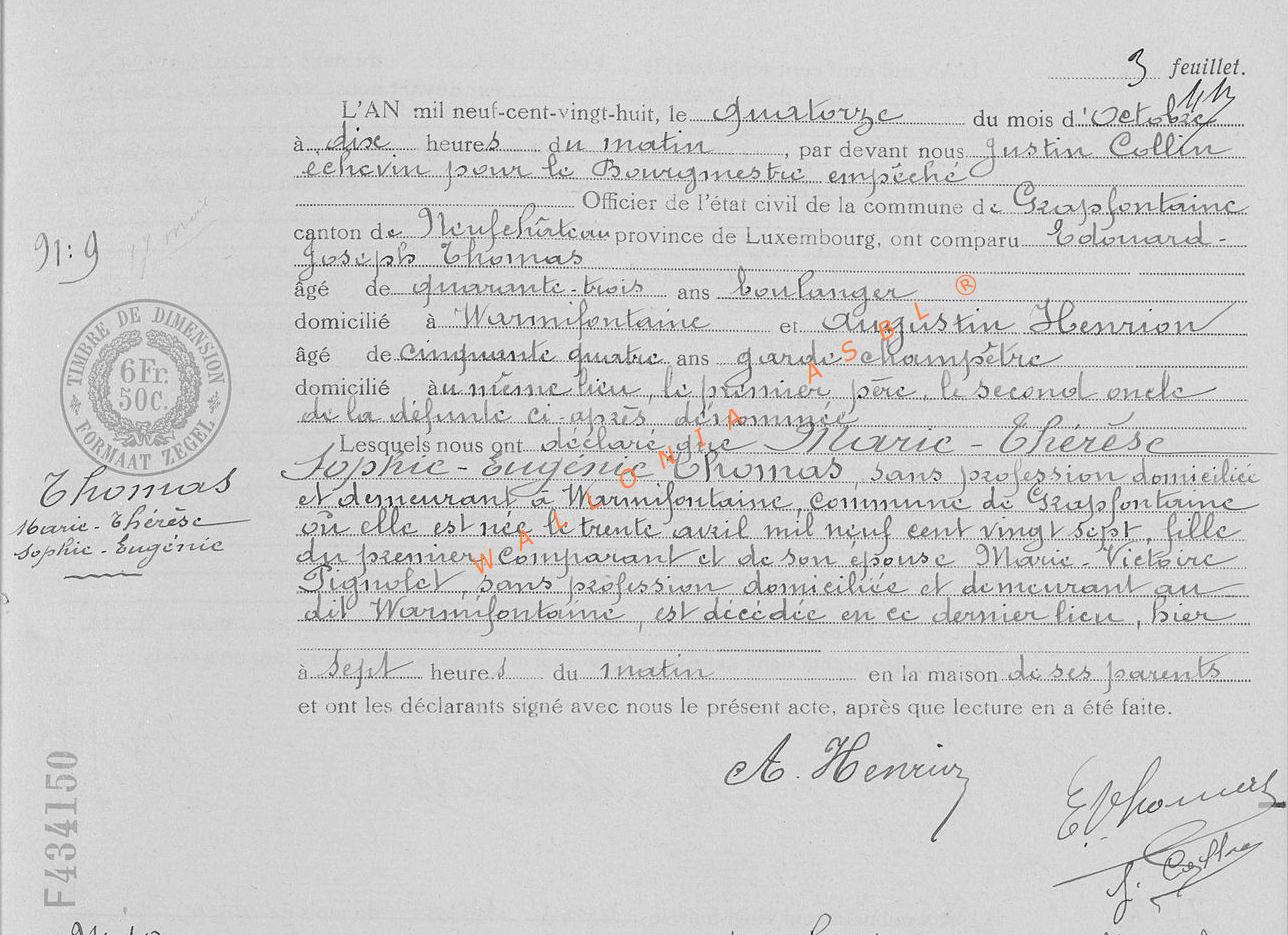 3 feuillet.
L'AN mil neuf-cent-vingt-huit, le quatorze du mois d'Octobre
à dix heures du matin, par devant nous Justin Collin
echevin pour le Bourgmestre empêché
Officier de l'état civil de la commune de Grapfontaine
canton de Neufchâteau province de Luxembourg, ont comparu Edouard-
Joseph Thomas
âgé de quarante-trois ans boulanger
domicilié à Warmifontaine et Augustin Henrion
âgé de cinquante quatre ans garde champêtre
domicilié au même lieu, le premier père, le second oncle
de la défunte ci-après dénommée
Lesquels nous ont déclaré que Marie-Thérèse
Sophie-Eugénie Thomas, sans profession domiciliée
et demeurant à Warmifontaine, commune de Grapfontaine
où elle est née le trente avril mil neuf cent vingt sept, fille
du premier comparant et de son epouse Marie-Victoire
Pignolet, sans profession domiciliée et demeurant au
dit Warmifontaine, est décédée en ce dernier lieu, hier
à sept heures du matin en la maison de ses parents
et ont les déclarants signé avec nous le présent acte, après que lecture en a été faite.
A. Henrion
E Thomas
J. Collin
No: 9
TIMBRE DE DIMENSION
6 Fr.
50 C.
FORMAAT ZEGEL
Thomas
Marie-Thérèse
Sophie-Eugénie
F434150
WALLONIA ASBL ®